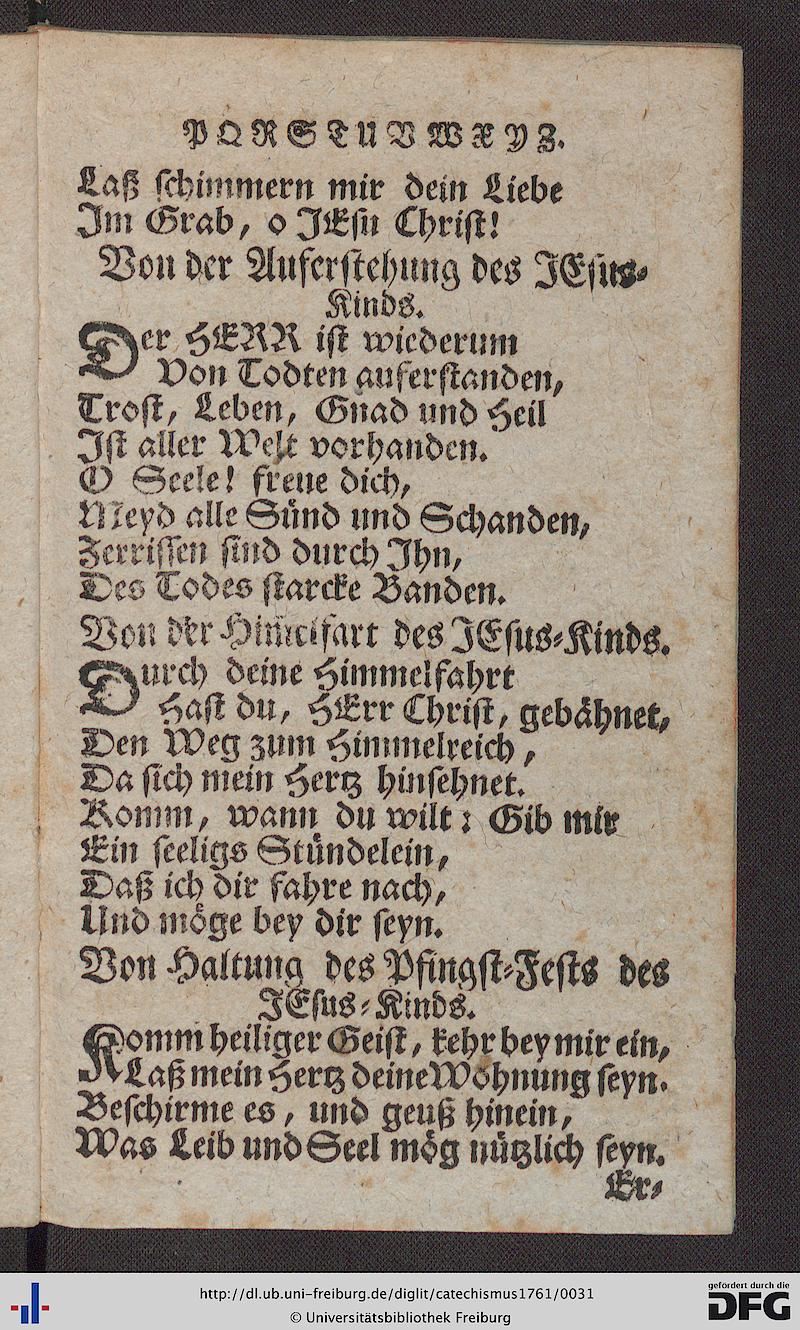 P Q R S T U V W X Y Z.
Laß schimmern mir dein Liebe
Im Grab, o JEsu Christ!
Von der Auferstehung des JEsus-
Kinds.
Der HERR ist wiederum
Von Todten auferstanden,
Trost, Leben, Gnad und Heil
Ist aller Welt vorhanden.
O Seele! freue dich,
Meyd alle Sünd und Schanden,
Zerrissen sind durch Ihn,
Des Todes starcke Banden.
Von der Himelfart des JEsus-Kinds.
Durch deine Himmelfahrt
Hast du, HErr Christ, gebähnet,
Den Weg zum Himmelreich,
Da sich mein Hertz hinsehnet.
Komm, wann du wilt: Gib mir
Ein seeligs Stündelein,
Daß ich dir fahre nach,
Und möge bey dir seyn.
Von Haltung des Pfingst-Fests des
JEsus-Kinds.
Komm heiliger Geist, kehr bey mir ein,
Laß mein Hertz deine Wohnung seyn.
Beschirme es, und geuß hinein,
Was Leib und Seel mög nützlich seyn.
Er-
http://dl.ub.uni-freiburg.de/diglit/catechismus1761/0031
© Universitätsbibliothek Freiburg
gefördert durch die
DFG